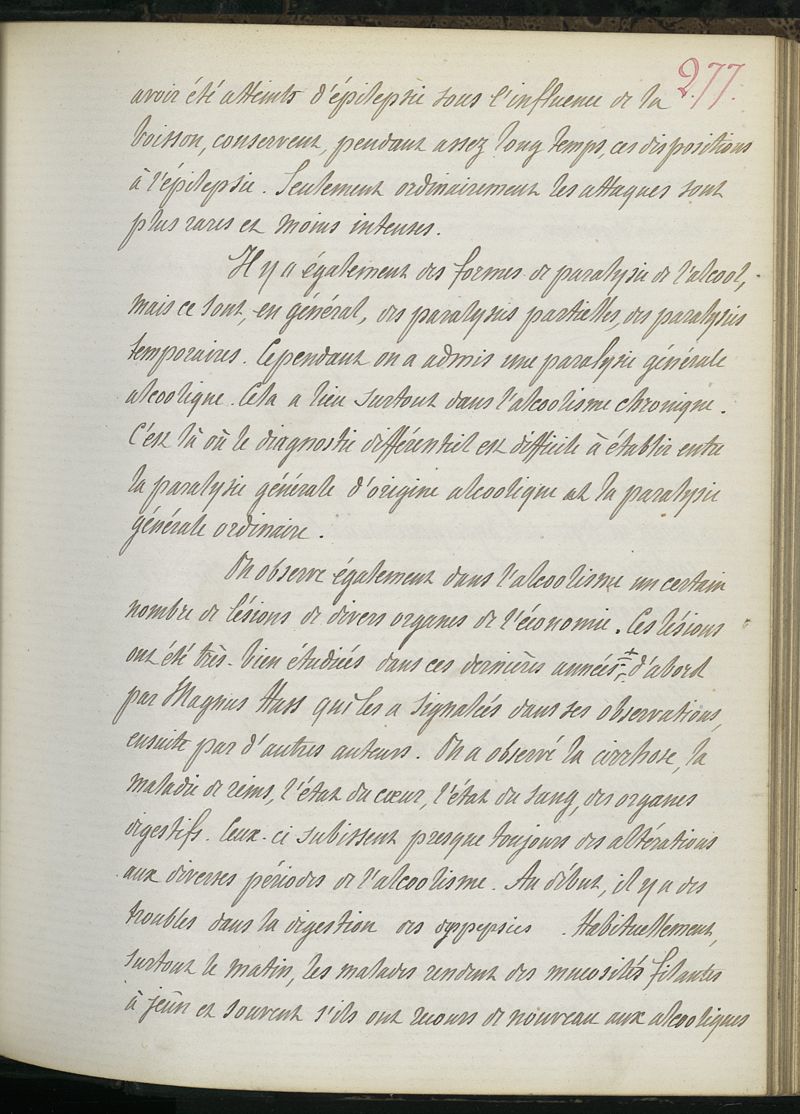 277.
avoir été atteints d'épilepsie sous l'influence de la
boisson, conservent, pendant assez long temps, ces dispositions
à l'épilepsie. Seulement ordinairement les attaques sont
plus rares et moins intenses.
Il y a également des formes de paralysie de l'alcool,
mais ce sont, en général, des paralysies partielles, des paralysies
temporaires. Cependant on a admis une paralysie générale
alcoolique. Cela a lieu surtout dans l'alcoolisme chronique.
C'est là où le diagnostic différentiel est difficile à établir entre
la paralysie générale d'origine alcoolique et la paralysie
générale ordinaire.
On observe également dans l'alcoolisme un certain
nombre de lésions de divers organes de l'économie. Ces lésions
ont été très-bien étudiées dans ces dernières années, d'abord
par Magnus Huss qui les a signalées dans ses observations,
ensuite par d'autres auteurs. On a observé la cirrhose, la
maladie de reins, l'état du cœur, l'état du sang, des organes
digestifs. Ceux-ci subissent presque toujours des altérations
aux diverses périodes de l'alcoolisme. Au début, il y a des
troubles dans la digestion des dyspepsies. Habituellement,
surtout le matin, les malades rendent des mucosités filantes
à jeûn et souvent s'ils ont recours de nouveau aux alcooliques